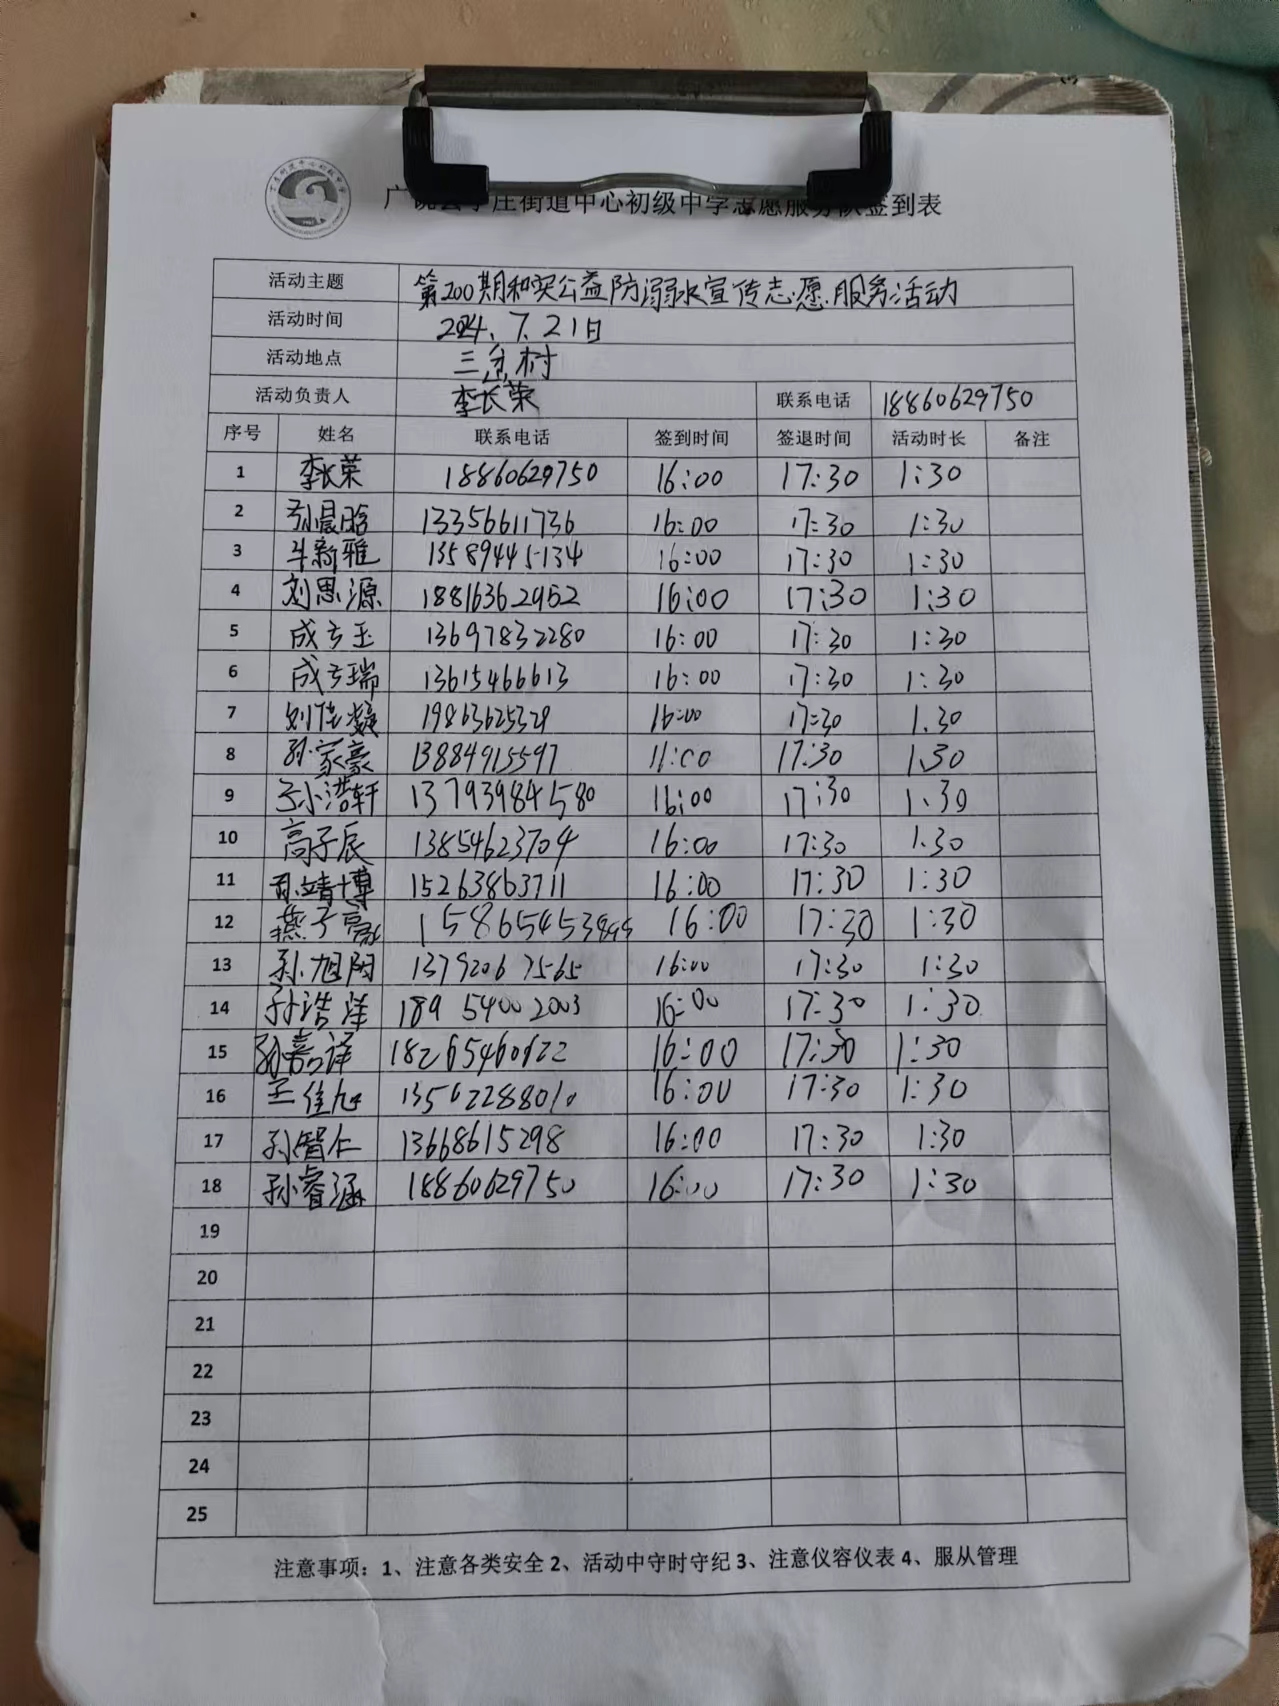 广饶县丁庄街道中心初级中学志愿服务队签到表
活动主题 第200期和实公益防溺水宣传志愿服务活动
活动时间 2024、7、21日
活动地点 三岔村
活动负责人 李长荣 联系电话 18860629750
序号 姓名 联系电话 签到时间 签退时间 活动时长 备注
1 李长荣 18860629750 16:00 17:30 1:30
2 13356611736 16:00 17:30 1:30
3 13589445134 16:00 17:30 1:30
4 刘思源 18816362952 16:00 17:30 1:30
5 成方玉 13697832280 16:00 17:30 1:30
6 成方瑞 13615466613 16:00 17:30 1:30
7 19863625329 16:00 17:30 1.30
8 孙家豪 13884915597 17:30 1.30
9 孙浩轩 13793984580 16:00 17:30 1.30
10 高子辰 13854623704 16:00 17:30 1.30
11 孙靖博 15263863711 16:00 17:30 1:30
12 燕子豪 16:00 17:30 1:30
13 孙旭阳 13792067565 16:00 17:30 1:30
14 孙浩洋 189 5400 2003 16:00 17:30 1:30
15 孙嘉译 18265460622 16:00 17:30 1:30
16 王佳旭 13562288010 16:00 17:30 1:30
17 孙智仁 13668615298 16:00 17:30 1:30
18 孙睿涵 18860629750 16:00 17:30 1:30
19
20
21
22
23
24
25
注意事项：1、注意各类安全 2、活动中守时守纪 3、注意仪容仪表 4、服从管理